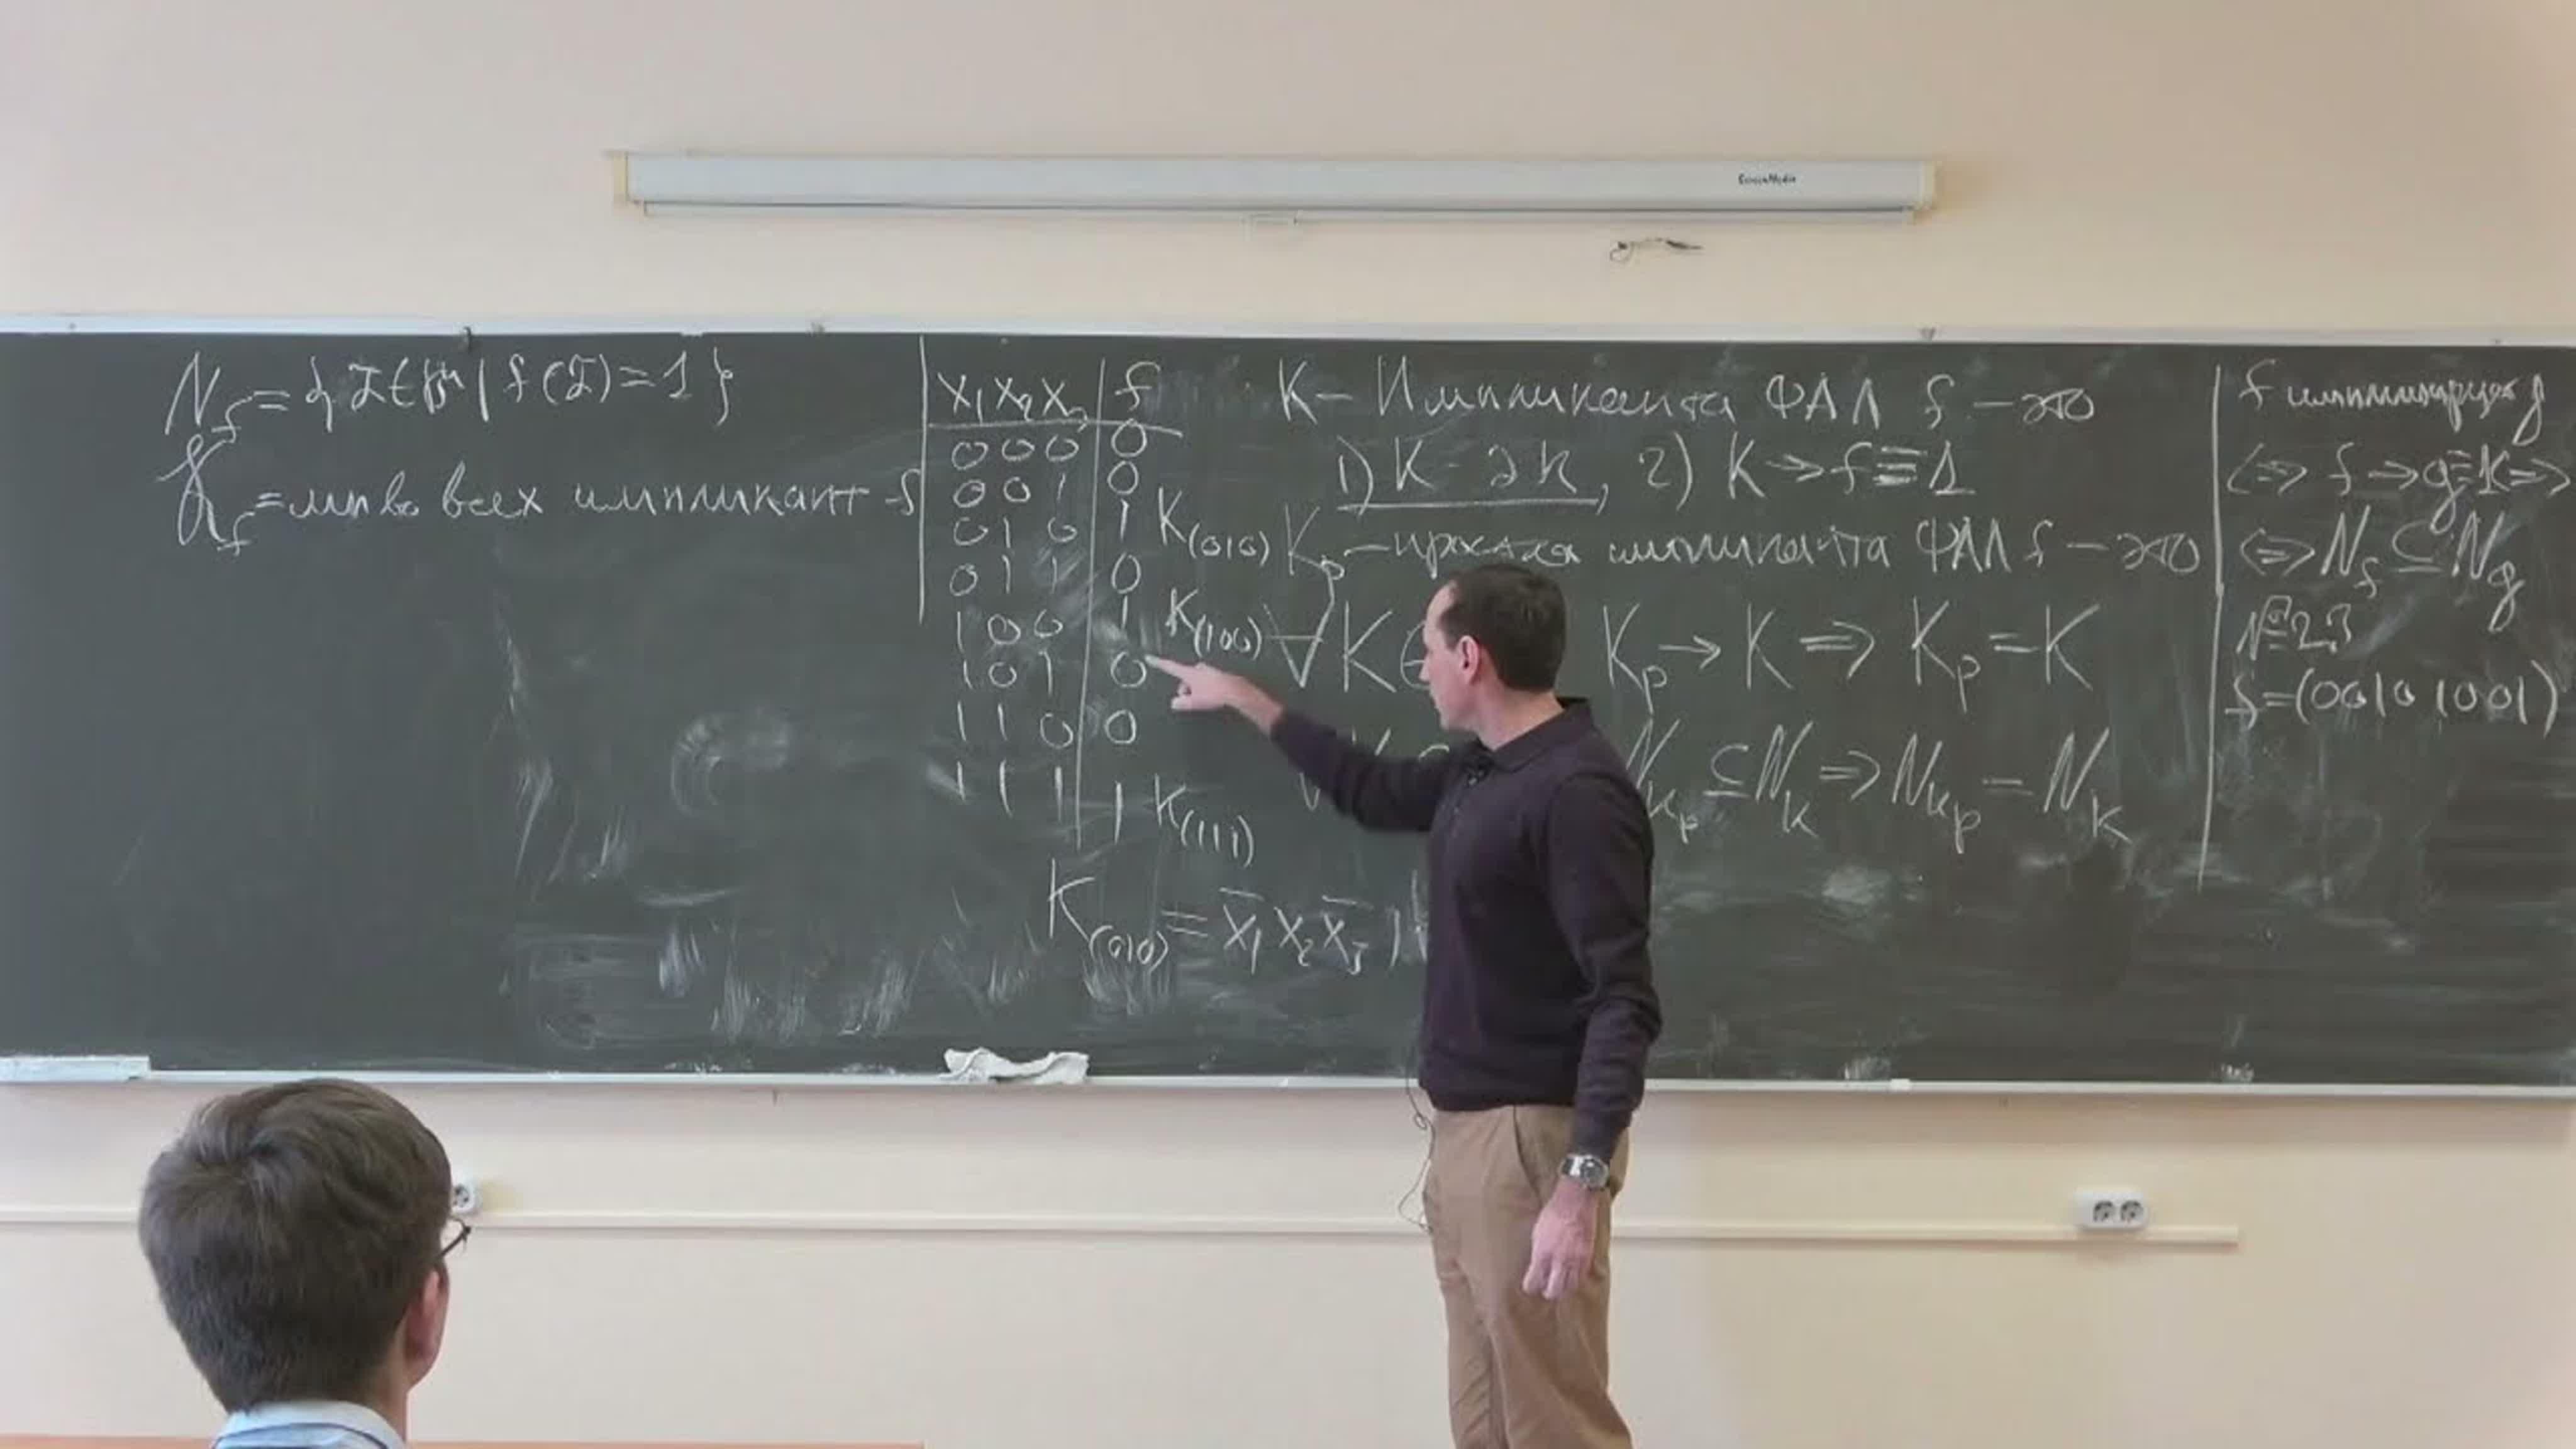 N_f = { α̃ ∈ Bⁿ | f(α̃) = 1 }
K_f = мн-во всех импликант f
x₁ x₂ x₃ | f
0 0 0 | 0
0 0 1 | 0
0 1 0 | 1 K(010)
0 1 1 | 0
1 0 0 | 1 K(100)
1 0 1 | 0
1 1 0 | 0
1 1 1 | 1 K(111)
K(010) = x̄₁ x₂ x̄₃
K – Импликанта ФАЛ f – это
1) K – ЭК, 2) K → f ≡ 1
K_p – простая импликанта ФАЛ f – это
∀ K ∈ K_p → K ⇒ K_p = K
N_{K_p} ⊆ N_K ⇒ N_{K_p} = N_K
f имплицирует g
⇔ f → g ≡ 1 ⇔
⇔ N_f ⊆ N_g
№ 2.3
f = (0010 1001)